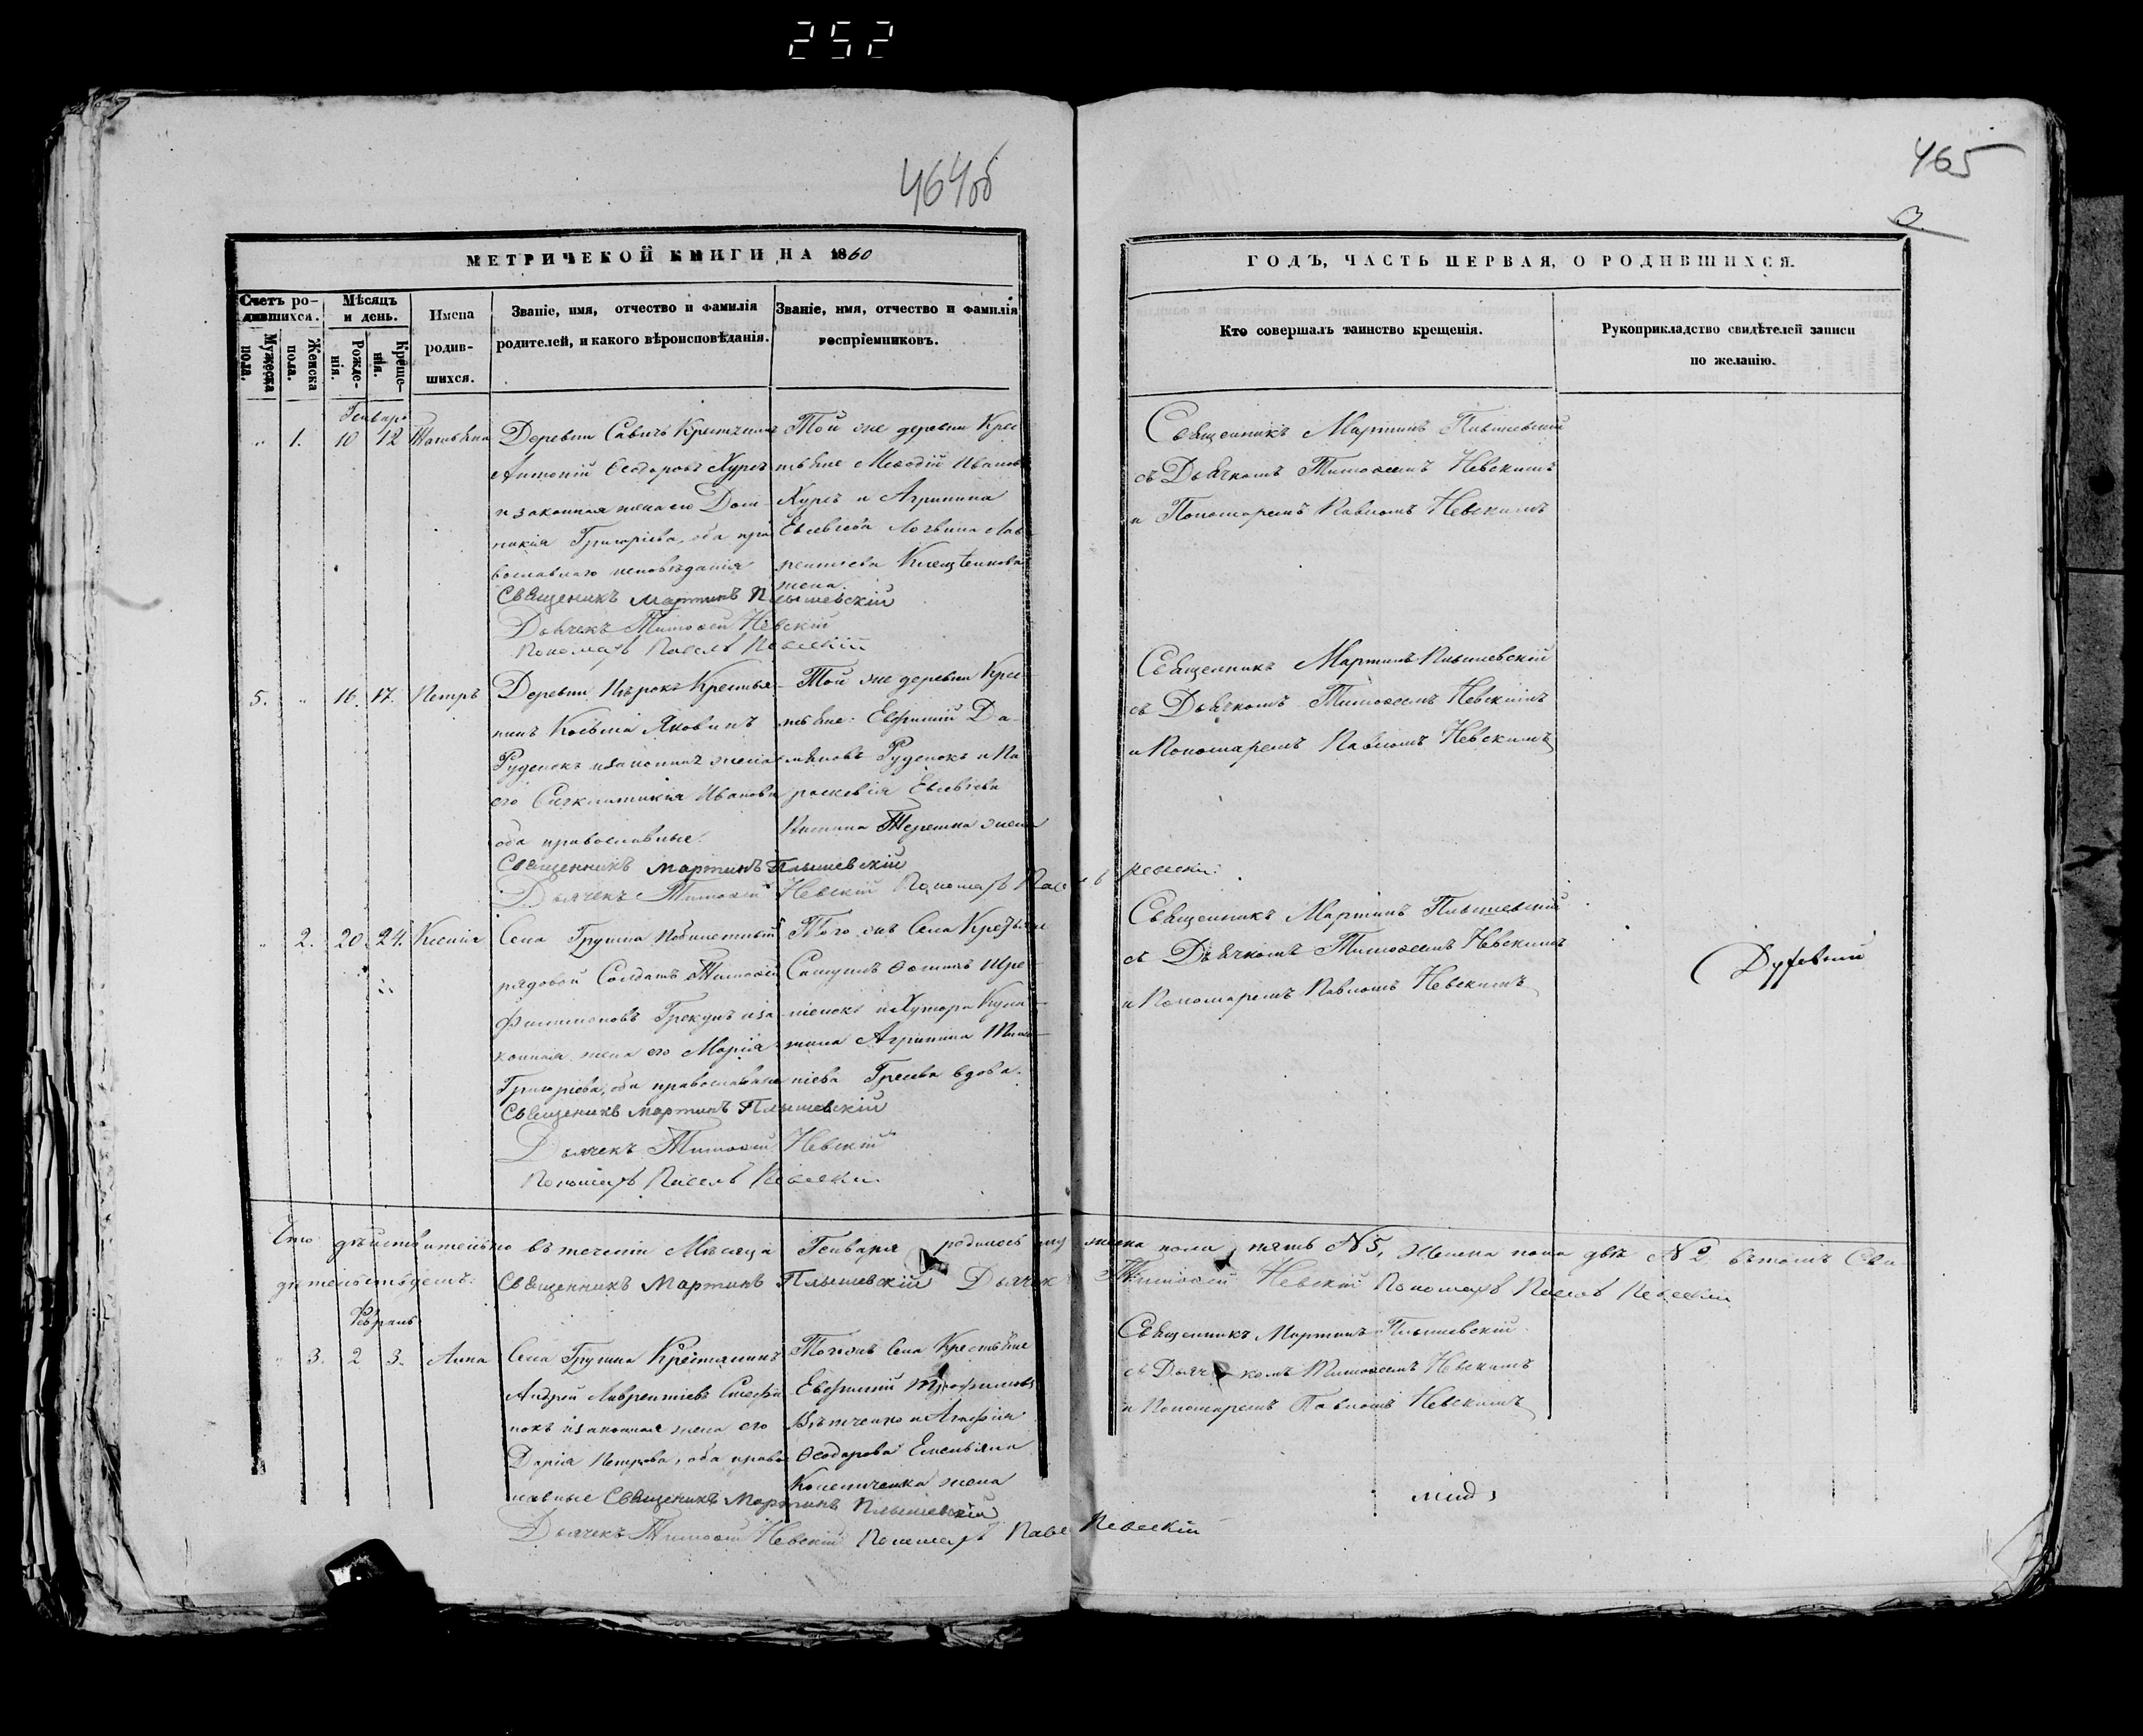 252
464об
465
3
МЕТРИЧЕКОЙ КНИГИ НА 1860
ГОДЪ, ЧАСТЬ ПЕРВАЯ, О РОДИВШИХСЯ.
Счетъ ро-
дившихся.
Мужеска
пола.
Женска
пола.
Мѣсяцъ
и день.
Рожде-
нія.
Креще-
нія.
Имена
родив-
шихся.
Званіе, имя, отчество и фамилія
родителей, и какого вѣроисповѣданія.
Званіе, имя, отчество и фамилія
воспріемниковъ.
Кто совершалъ таинство крещенія.
Рукоприкладство свидѣтелей записи
по желанію.
Генварь
1. 10 12 Татьяна
Деревни Савичъ
Антоній Ѳеодоровъ Хурсъ
и законная жена его Дом-
никія Григоріева, оба пра
вославнаго исповѣданія
Священикъ Мартинъ Плышевскій
Дьячекъ Тимоѳей Невскій
Пономарь Павелъ Невский
Той же деревни Крес
тьяне Меѳодій Ивановъ
Хурсъ и Агрипина
Евсевіева Логвина Лав
рентіева
жена.
Священникъ Мартинъ Плышевскій
съ Дьячкомъ Тимоѳеемъ Невскимъ
и Пономаремъ Павломъ Невскимъ
5. 16. 17. Петръ
Деревни Крестья-
нинъ Косьма Яковинъ
Руденокъ и законная жена
его Сигклитикія Иванова
оба православные.
Священникъ Мартинъ Плышевскій
Дьячекъ Тимоѳей Невскій Пономарь Павелъ Невски
Той же деревни Крес
тьяне: Евфимій Да-
міяновъ Руденокъ и Па
раскевія Евсевіева
Терешка жена
Священникъ Мартинъ Плышевскій
съ Дьячкомъ Тимоѳеемъ Невскимъ
и Пономаремъ Павломъ Невскимъ
2. 20. 24. Ксенія
Села Грушна
рядовой Солдатъ Тимоѳей
Филимоновъ Грекунъ и за
конная жена его Марія
Григоріева, оба православные
Священикъ Мартинъ Плышевскій
Дьячекъ Тимоѳей Невскій
Пономарь Павелъ Невски
Того же Села Крестьяне
и Хутора
Агрипина
вдова.
Священникъ Мартинъ Плышевскій
съ Дьячкомъ Тимоѳеемъ Невскимъ
и Пономаремъ Павломъ Невскимъ
Что дѣйствительно въ теченіи Мѣсяца Генваря родилось мужеска пола пять N 5, женска пола двѣ N 2 въ томъ Сви-
дѣтельствуемъ: Священникъ Мартинъ Плышевскій Дьячекъ Тимоѳей Невскій Пономарь Павелъ Невский
Февраль
3. 2 3. Анна
Села Грушна Крестянинъ
Андрей Лаврентіевъ
и законная жена его
Дарія Петрова, оба правос
лавные Священикъ Мартинъ Плышевскій
Дьячекъ Тимоѳей Невскій Пономарь Павелъ Невский
Того же Села Крестьяне
Евфимій Трофимовъ
и Агафія
Ѳеодорова Емельяна
жена
Священникъ Мартинъ Плышевскій
съ Дьячкомъ Тимоѳеемъ Невскимъ
и Пономаремъ Павломъ Невскимъ